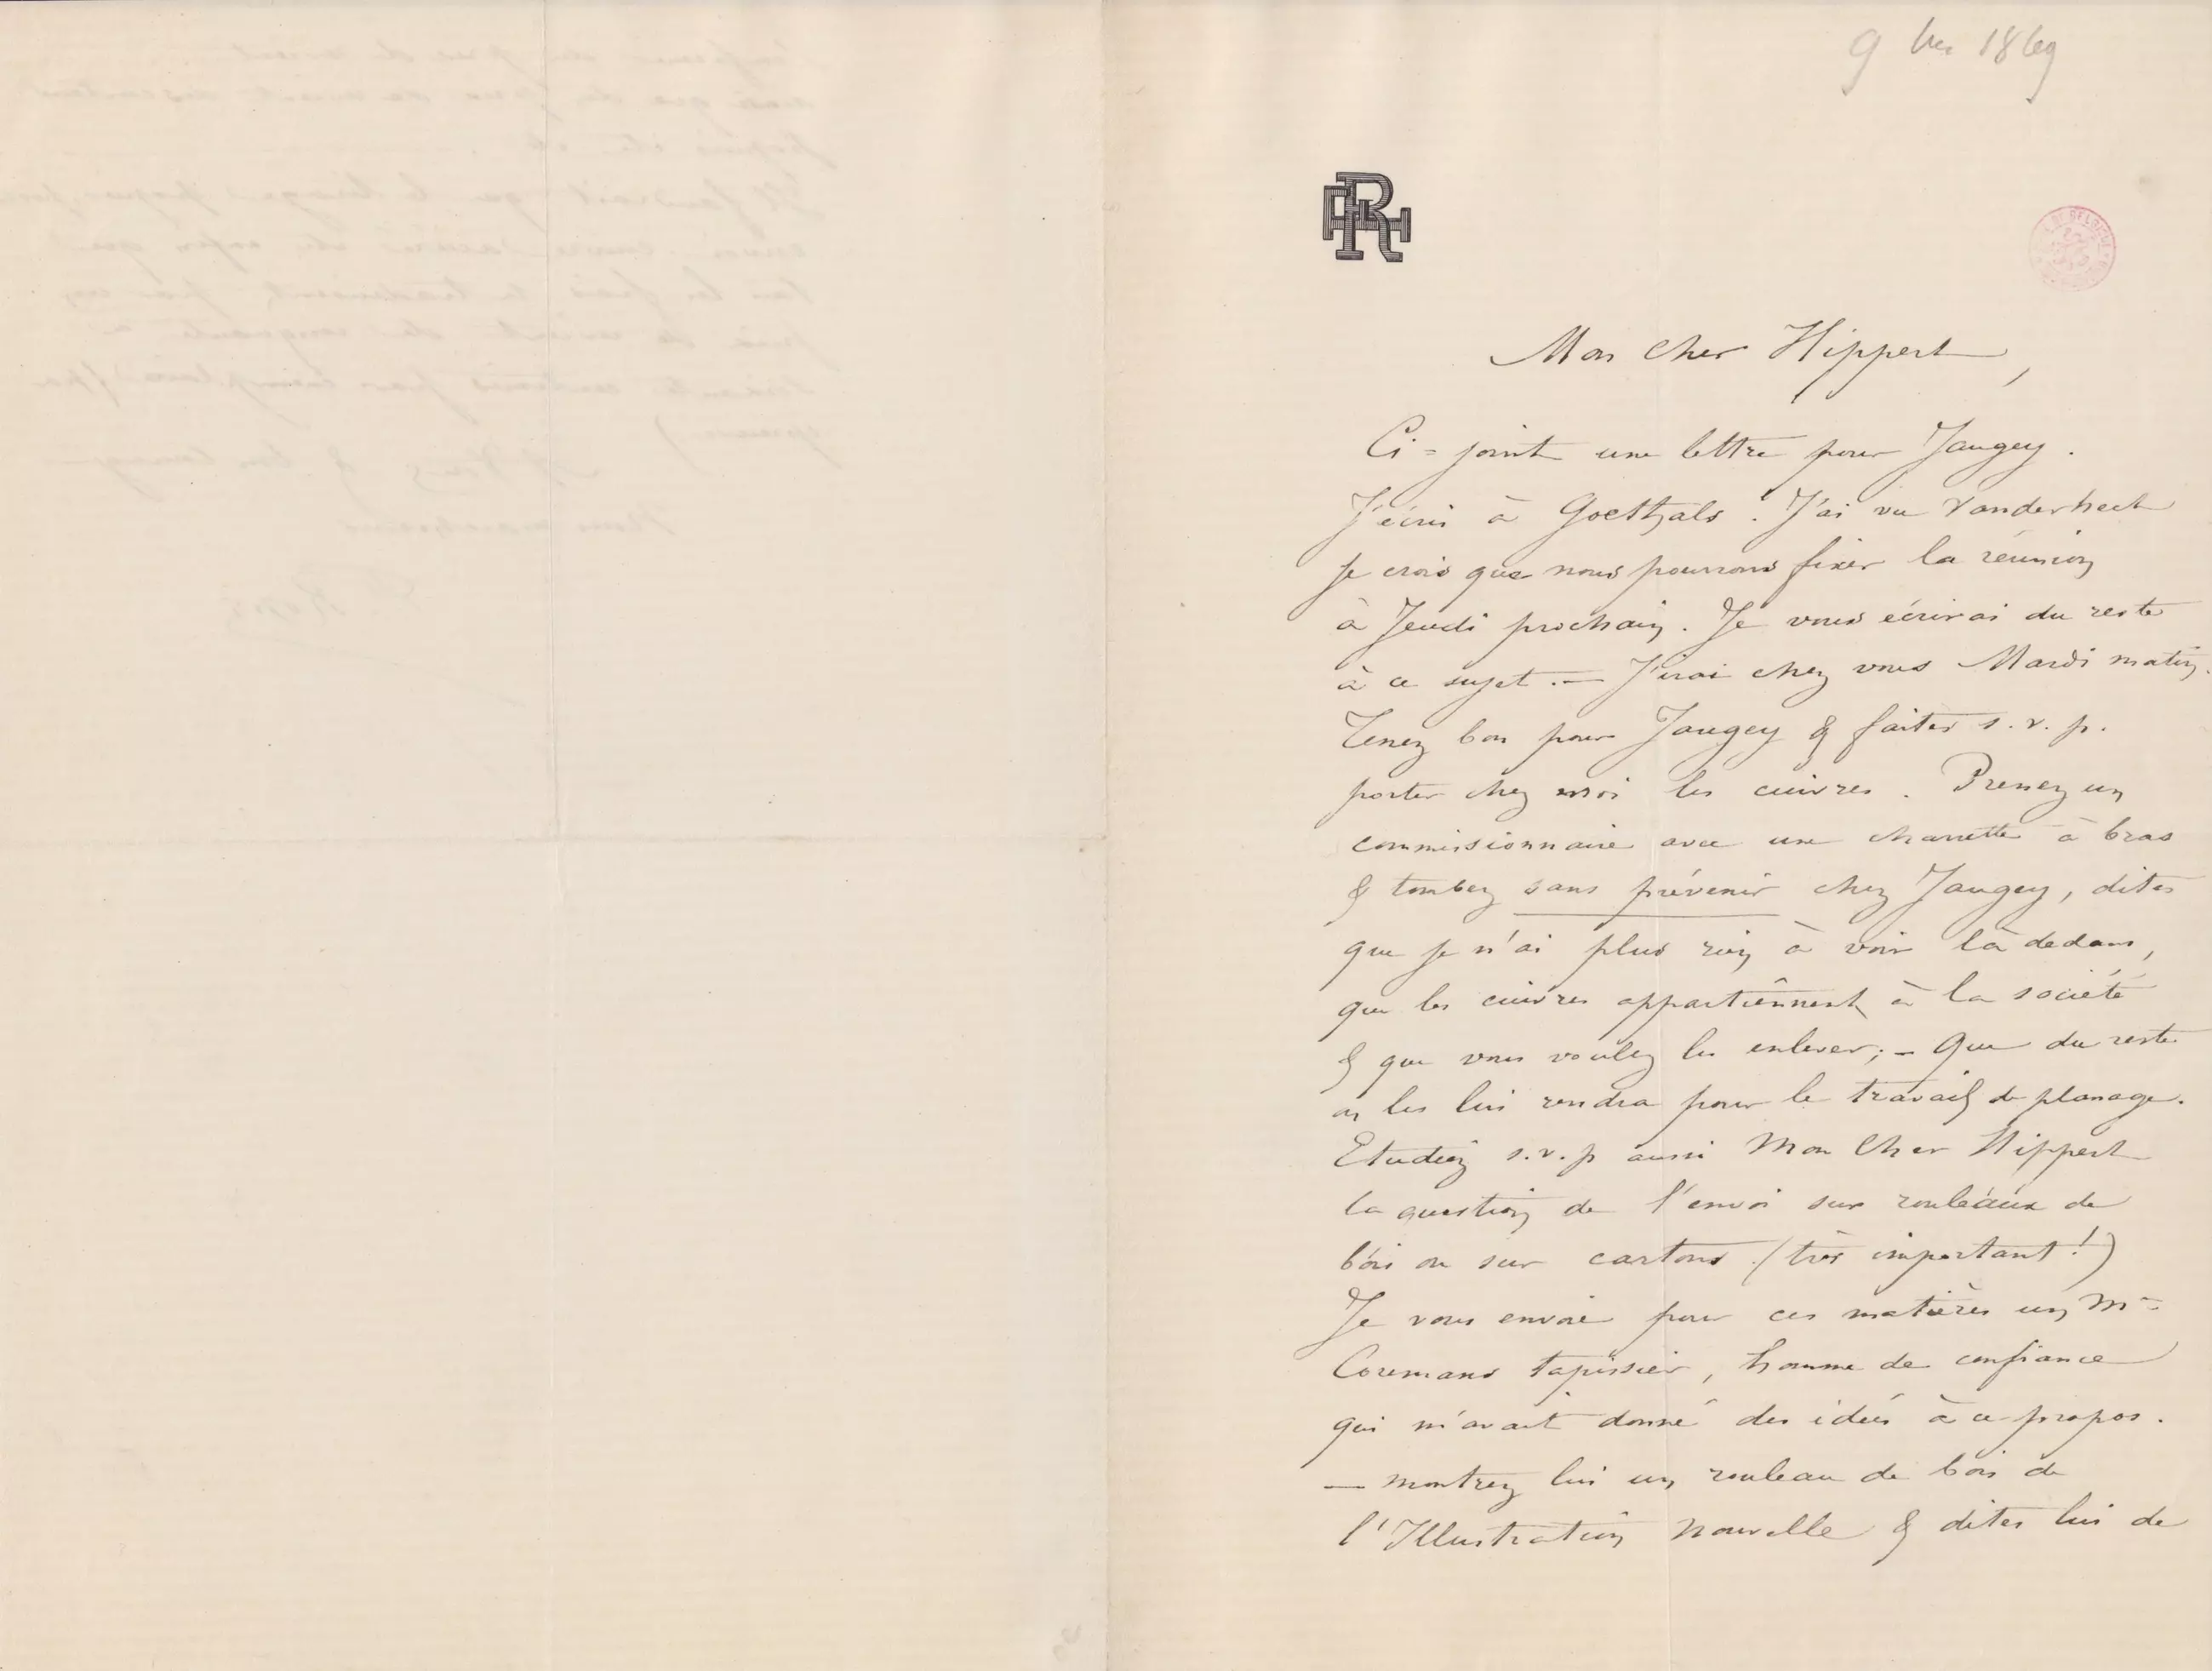 9 bre 1869
Mon cher Hippert,
Ci-joint une lettre pour Jaugey.
J'écris à Goethals. J'ai vu Vanderhecht
je crois que nous pourrons fixer la réunion
à Jeudi prochain. Je vous écrirai du reste
à ce sujet. — J'irai chez vous Mardi matin.
Tenez bon pour Jaugey & faites s. v. p.
porter chez moi les cuivres. Prenez un
commissionnaire avec une charrette à bras
& tombez sans prévenir chez Jaugey, dites
que je n'ai plus rien à voir là dedans,
que les cuivres appartiennent à la société
& que vous voulez les enlever; — que du reste
on les lui rendra pour le travail de planage.
Etudiez s.v.p aussi Mon Cher Hippert
la question de l'envoi sur rouleaux de
bois ou sur cartons (très important!)
Je vous envoie pour ces matières un Mr
Coremans tapissier, homme de confiance
qui m'avait donné des idées à ce propos.
— montrez lui un rouleau de bois de
l'Illustration Nouvelle & dites lui de